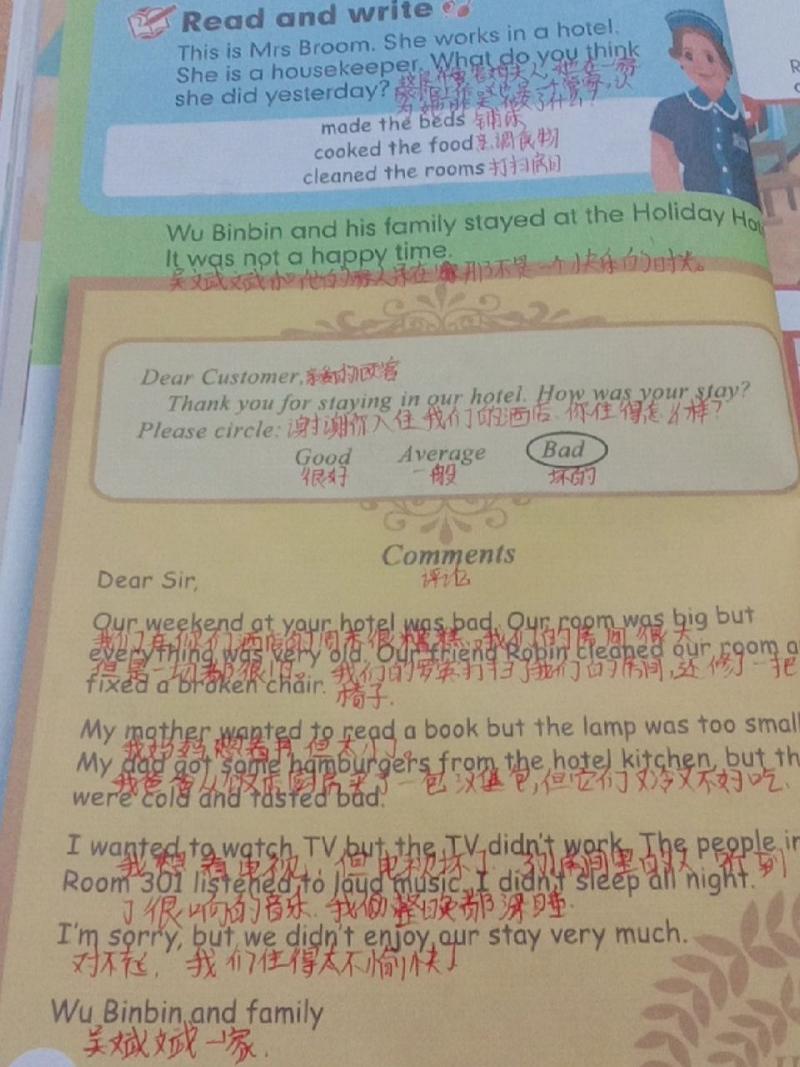 Read and write
This is Mrs Broom. She works in a hotel.
She is a housekeeper. What do you think
she did yesterday?
made the beds 铺床
cooked the food 烹调食物
cleaned the rooms 打扫房间
Wu Binbin and his family stayed at the Holiday
It was not a happy time.
那不是一个快乐的时光。
Dear Customer, 亲爱的顾客
Thank you for staying in our hotel. How was your stay?
Please circle: 谢谢你入住我们的酒店. 你住得怎么样?
Good Average Bad
很好 一般 坏的
Comments
评论
Dear Sir,
Our weekend at your hotel was bad. Our room was big but
我们在你们酒店的周末很糟糕, 我们的房间很大
everything was very old. Our friend Robin cleaned our room
但是一切都很旧。 我们的 打扫了我们的房间, 还修了一把
fixed a broken chair. 椅子.
My mother wanted to read a book but the lamp was too small
我妈妈想看书 但 太小了。
My dad got some hamburgers from the hotel kitchen, but
我爸爸从 厨房 了一包汉堡包, 但它们又冷又不好吃.
were cold and tasted bad.
I wanted to watch TV but the TV didn't work. The people in
我想看电视, 但电视坏了. 房间里的人 听到
Room 301 listened to loud music. I didn't sleep all night.
了很响的音乐. 我 整晚都没睡.
I'm sorry, but we didn't enjoy our stay very much.
对不起, 我们住得太不愉快了
Wu Binbin and family
吴斌斌一家.